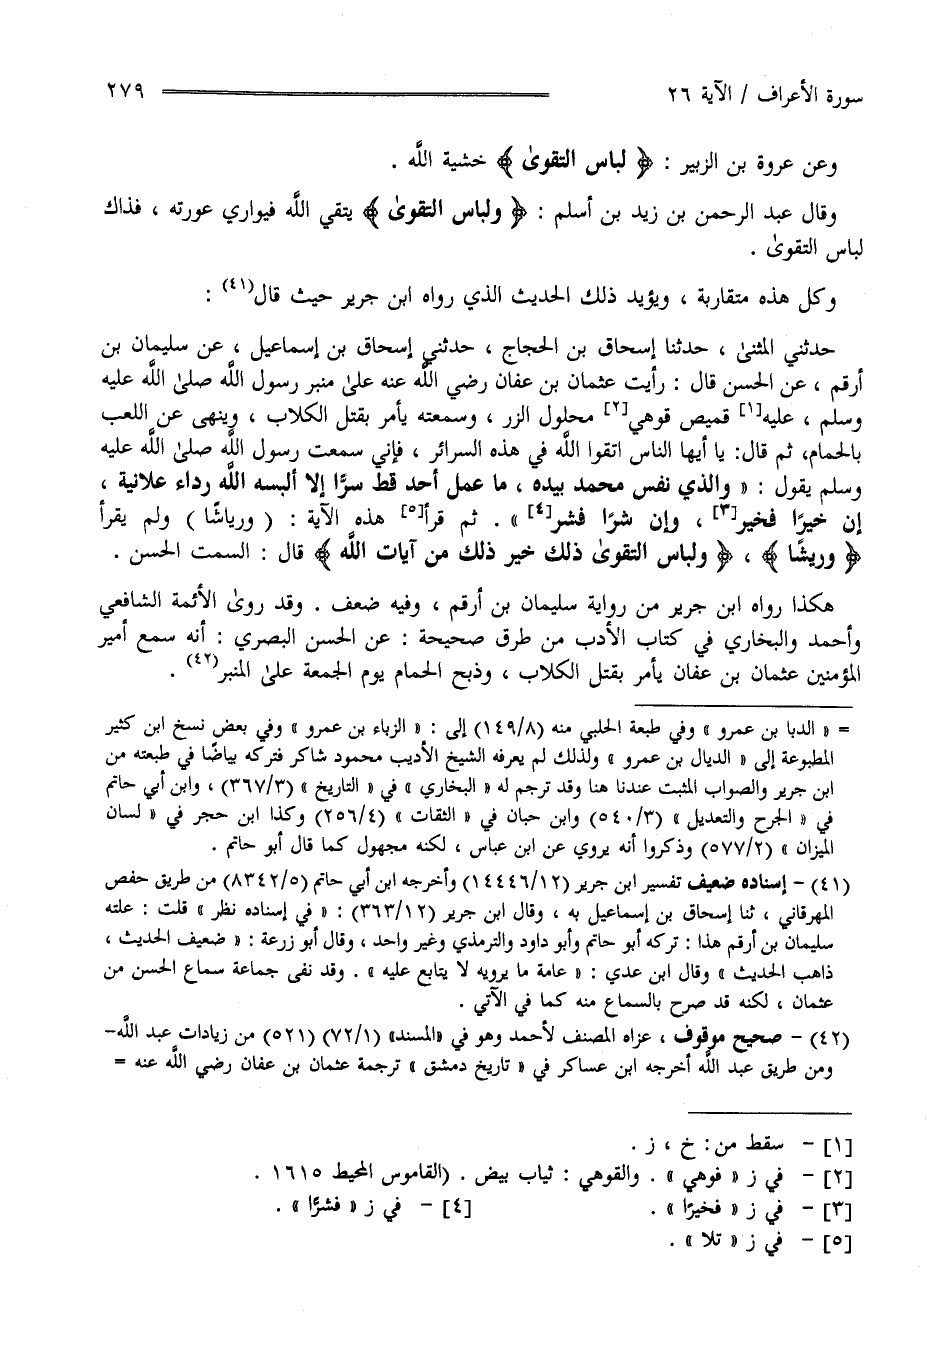 سورة الأعراف / الآية ٢٦ ٢٧٩
وعن عروة بن الزبير : ﴿ لباس التقوىٰ ﴾ خشية اللَّه .
وقال عبد الرحمن بن زيد بن أسلم : ﴿ ولباس التقوىٰ ﴾ يتقي اللَّه فيواري عورته ، فذاك
لباس التقوىٰ .
وكل هذه متقاربة ، ويؤيد ذلك الحديث الذي رواه ابن جرير حيث قال(٤١) :
حدثني المثنىٰ ، حدثنا إسحاق بن الحجاج ، حدثني إسحاق بن إسماعيل ، عن سليمان بن
أرقم ، عن الحسن قال : رأيت عثمان بن عفان رضي اللَّه عنه علىٰ منبر رسول اللَّه صلىٰ اللَّه عليه
وسلم ، عليه[١] قميص قوهي[٢] محلول الزر ، وسمعته يأمر بقتل الكلاب ، وينهى عن اللعب
بالحمام، ثم قال: يا أيها الناس اتقوا اللَّه في هذه السرائر ، فإني سمعت رسول اللَّه صلىٰ اللَّه عليه
وسلم يقول : « والذي نفس محمد بيده ، ما عمل أحد قط سرًّا إلا ألبسه اللَّه رداء علانية ،
إن خيرًا فخير[٣] ، وإن شرًا فشر[٤] » . ثم قرأ[٥] هذه الآية : ( ورياشًا ) ولم يقرأ
﴿ وريشًا ﴾ ، ﴿ ولباس التقوىٰ ذلك خير ذلك من آيات اللَّه ﴾ قال : السمت الحسن .
هكذا رواه ابن جرير من رواية سليمان بن أرقم ، وفيه ضعف . وقد روىٰ الأئمة الشافعي
وأحمد والبخاري في كتاب الأدب من طرق صحيحة : عن الحسن البصري : أنه سمع أمير
المؤمنين عثمان بن عفان يأمر بقتل الكلاب ، وذبح الحمام يوم الجمعة علىٰ المنبر(٤٢) .
= « الدبا بن عمرو » وفي طبعة الحلبي منه (١٤٩/٨) إلى : « الزباء بن عمرو » وفي بعض نسخ ابن كثير
المطبوعة إلى « الديال بن عمرو » ولذلك لم يعرفه الشيخ الأديب محمود شاكر فتركه بياضًا في طبعته من
ابن جرير والصواب المثبت عندنا هنا وقد ترجم له « البخاري » في « التاريخ » (٣٦٧/٣) ، وابن أبي حاتم
في « الجرح والتعديل » (٥٤٠/٣) وابن حبان في « الثقات » (٢٥٦/٤) وكذا ابن حجر في « لسان
الميزان » (٥٧٧/٢) وذكروا أنه يروي عن ابن عباس ، لكنه مجهول كما قال أبو حاتم .
(٤١) - إسناده ضعيف تفسير ابن جرير (١٤٤٤٦/١٢) وأخرجه ابن أبي حاتم (٨٣٤٢/٥) من طريق حفص
المهرقاني ، ثنا إسحاق بن إسماعيل به ، وقال ابن جرير (٣٦٣/١٢) : « في إسناده نظر » قلت : علته
سليمان بن أرقم هذا : تركه أبو حاتم وأبو داود والترمذي وغير واحد ، وقال أبو زرعة : « ضعيف الحديث ،
ذاهب الحديث » وقال ابن عدي : « عامة ما يرويه لا يتابع عليه » . وقد نفى جماعة سماع الحسن من
عثمان ، لكنه قد صرح بالسماع منه كما في الآتي .
(٤٢) - صحيح موقوف ، عزاه المصنف لأحمد وهو في «المسند» (٧٢/١) (٥٢١) من زيادات عبد اللَّه-
ومن طريق عبد اللَّه أخرجه ابن عساكر في « تاريخ دمشق » ترجمة عثمان بن عفان رضي اللَّه عنه =
[١] - سقط من: خ ، ز .
[٢] - في ز « فوهي » . والقوهي : ثياب بيض . (القاموس المحيط ١٦١٥ .
[٣] - في ز « فخيرًا » . [٤] - في ز « فشرًّا » .
[٥] - في ز « تلا » .